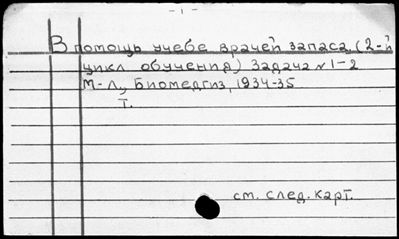 - 1 -
В помощь учебе врачей запаса, (2-й
цикл обучения) Задача №1-2
М-Л., Биомедгиз, 1934-35
т.
см. след. карт.